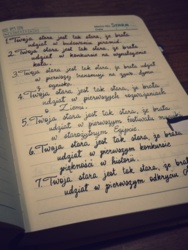 1. Twoja stara jest tak stara, że brała
udział w budowaniu piramid.
2. Twoja stara jest tak stara, że brała
udział w konkursie na wynalezienie
koła.
3. Twoja stara jest tak stara, że brała udział
w pierwszej
4. Twoja stara jest tak stara, że brała
udział w pierwszych
5. Twoja stara jest tak stara, że brała
udział w pierwszym festiwalu
w starożytnym Egipcie.
6. Twoja stara jest tak stara, że brała
udział w pierwszym konkursie
piękności w historii.
7. Twoja stara jest tak stara, że brała
udział w pierwszym odkryciu